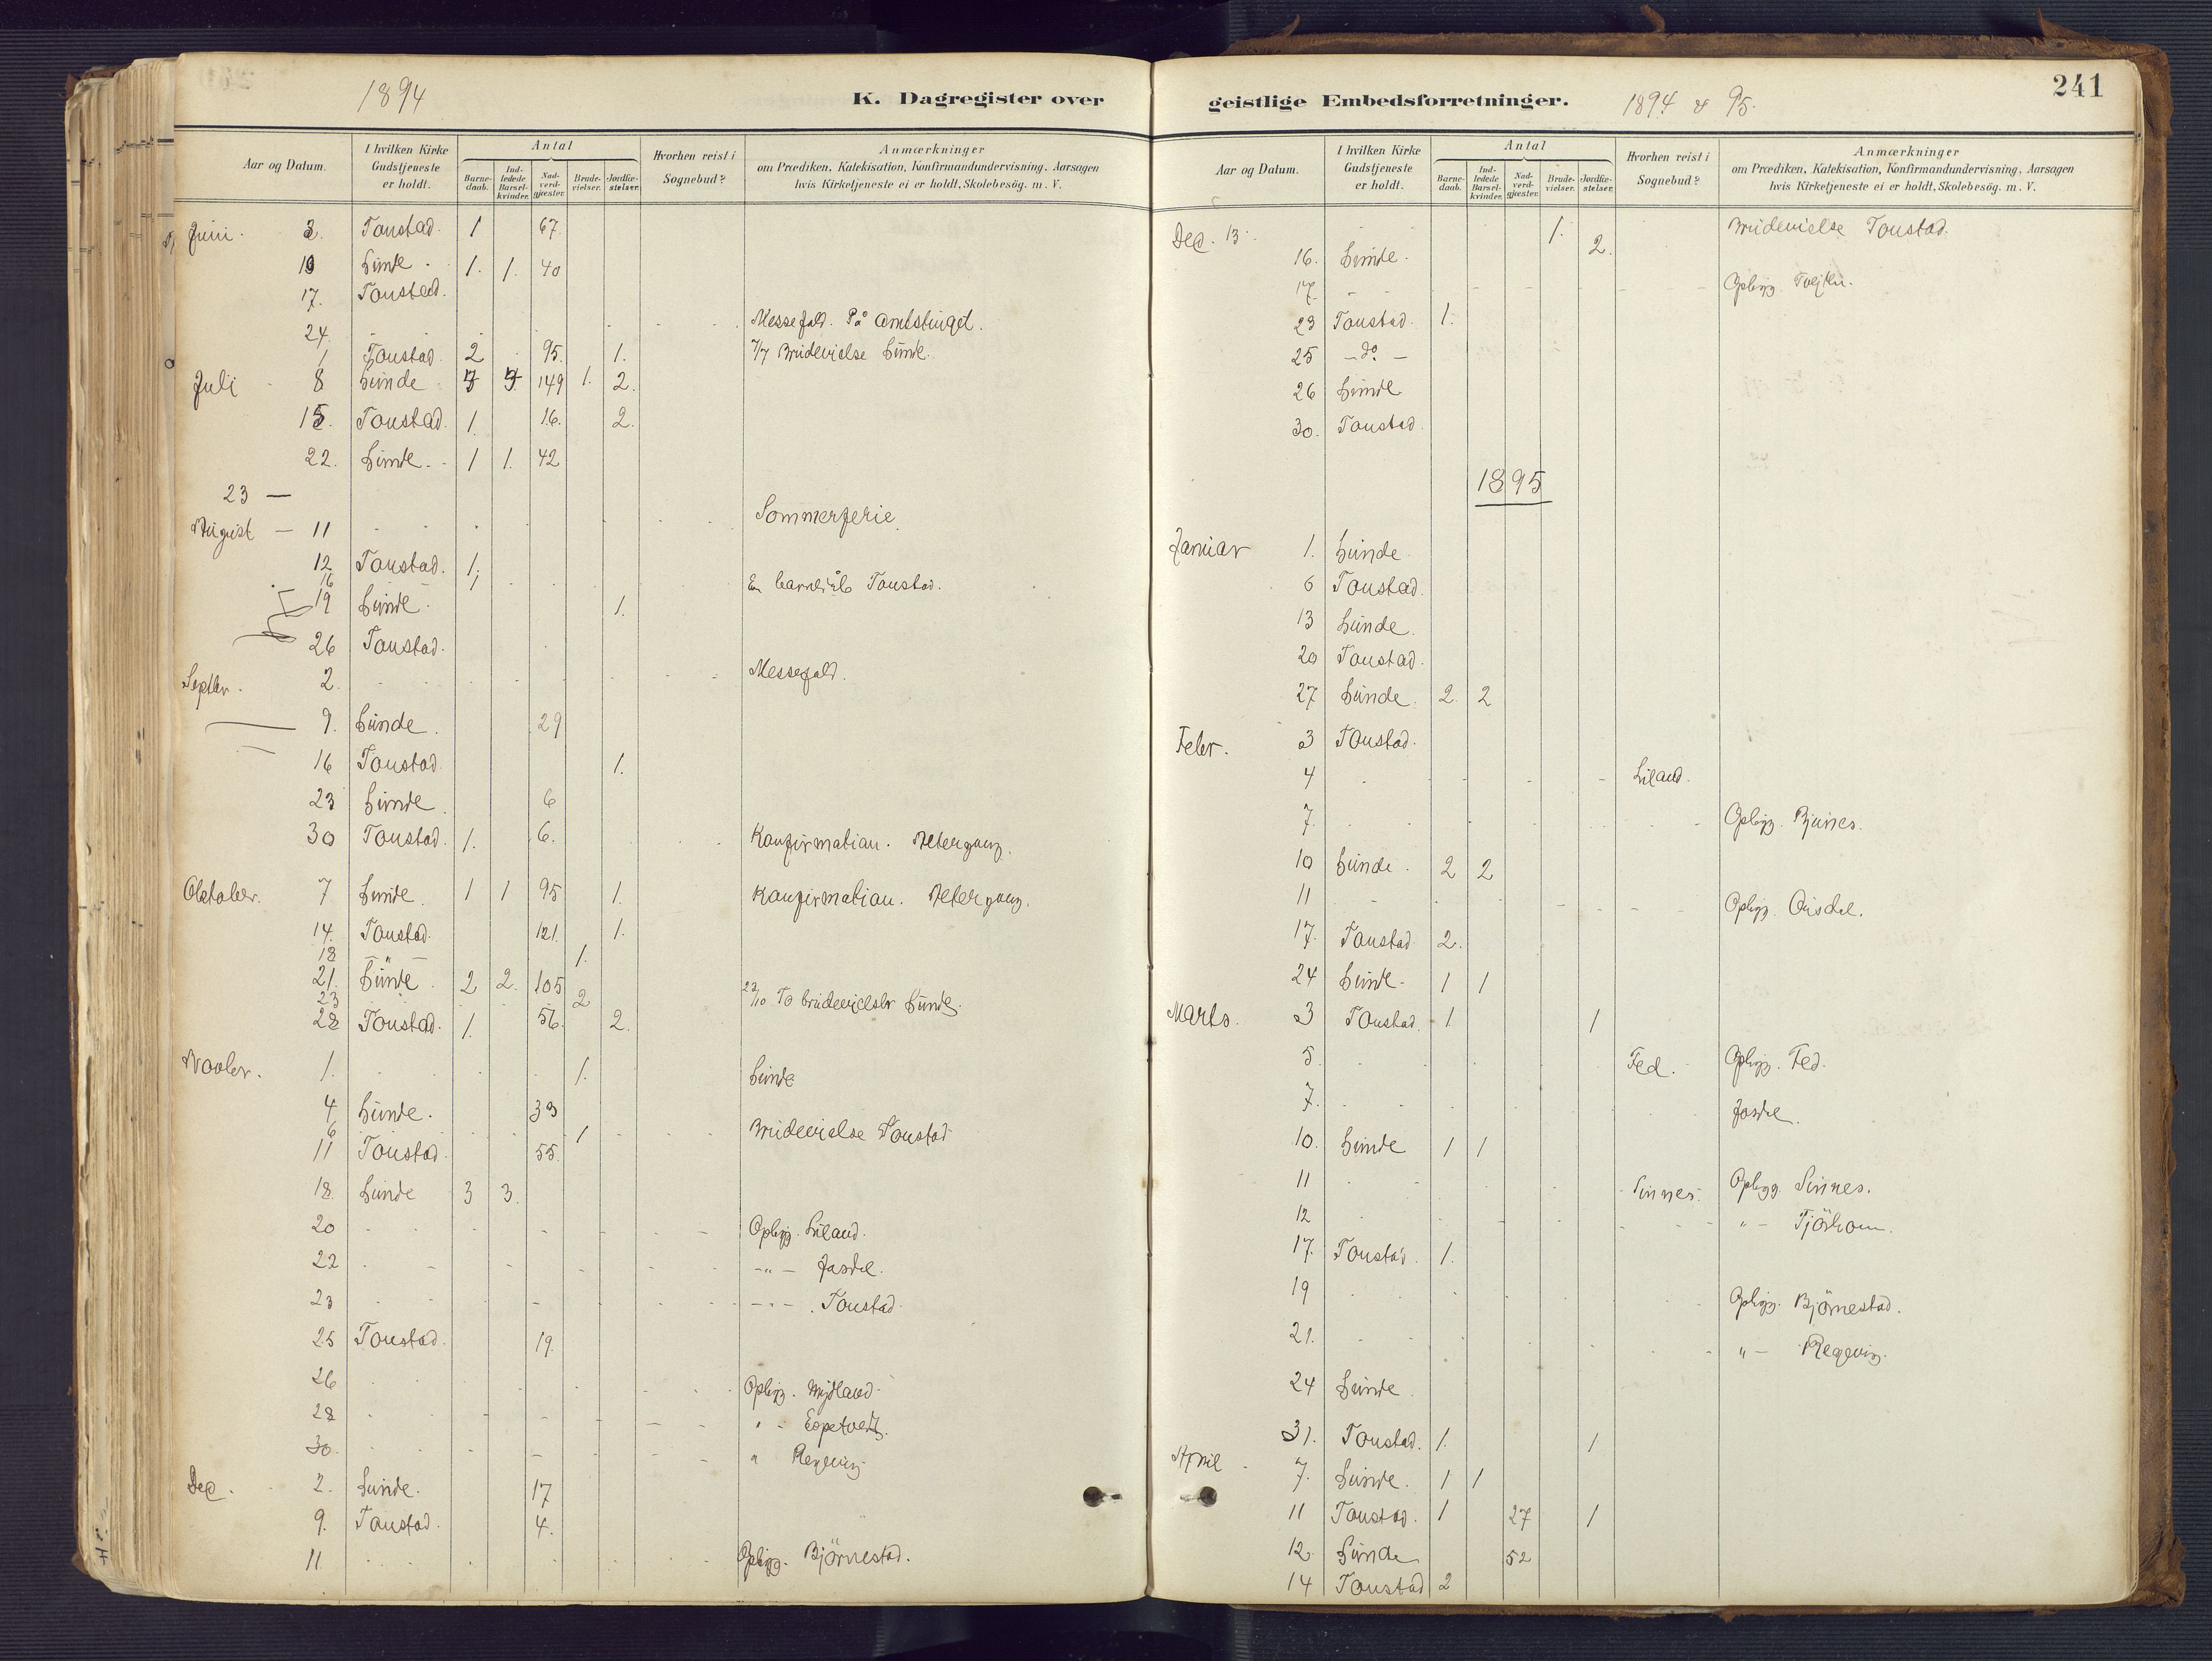 1894
K. Dagregister over
Aar og Datum.
I hvilken Kirke Gudstjeneste er holdt.
Antal
Barnedaab.
Indledede Barselkvinder.
Nadverdgjæster.
Brudevielser.
Jordfæstelser.
Hvorhen reist i Sognebud?
Anmærkninger
om Prædiken, Katekisation, Konfirmandundervisning, Aarsagen
hvis Kirketjeneste ei er holdt, Skolebesög. m. V.
Juni. 3. Tonstad. 1 67.
10 Lunde. 1. 1. 40
17. Tonstad.
24. Messefald. På amtstinget.
1 Tonstad. 2 95. 1. 7/7 Brudevielse Lunde.
Juli 8 Lunde 149 1. 2.
15. Tonstad. 1. 16. 2.
22. Lunde. 1 1. 42
23 —
August — 11 Sommerferie.
12 Tonstad. 1.
16 1 En barnedåb Tonstad.
19 Lunde. 1.
26 Tonstad.
Septbr. 2. Messefald.
9. Lunde. 29
16 Tonstad. 1.
23 Lunde. 6
30 Tonstad. 1. 6. Konfirmation. Altergang.
Oktober. 7 Lunde. 1 1 95 1. Konfirmation. Altergang.
14. Tonstad. 121. 1.
18 — " — 1.
21. Lunde. 2 2. 105
23 2 23/10 To brudevielser Lunde.
28 Tonstad. 1. 56. 2.
Novbr. 1. 1. Lunde
4 Lunde. 39
6 1 Brudevielse Tonstad
11 Tonstad. 55.
18. Lunde 3 3.
20 Opbygg. Liland.
22 -"- Josdal.
23 -"- Tonstad.
25 Tonstad. 19.
26 Opbygg. Mydland.
28 " - Espetvedt.
30. " Regevig
Dec. 2. Lunde. 17
9. Tonstad. 4.
11 Opbygg. Björnestad.
geistlige Embedsforretninger.
1894 & 95.
241
Aar og Datum.
I hvilken Kirke Gudstjeneste er holdt.
Antal
Barnedaab.
Indledede Barselkvinder.
Nadverdgjæster.
Brudevielser.
Jordfæstelser.
Hvorhen reist i Sognebud?
Anmærkninger
om Prædiken, Katekisation, Konfirmandundervisning, Aarsagen
hvis Kirketjeneste ei er holdt, Skolebesög. m. V.
Dec. 13. 1. Brudevielse Tonstad.
16. Lunde. 2.
17. Opbygg.
23 Tonstad. 1.
25 — do —
26 Lunde
30. Tonstad.
1895
Januar 1. Lunde
6 Tonstad.
13 Lunde.
20 Tonstad.
27 Lunde. 2. 2
Febr. 3 Tonstad.
4 Liland.
7. Opbygg. Bjunes.
10 Lunde. 2 2
11 Opbygg. Ousdal.
17. Tonstad 2.
24 Lunde. 1 1
Marts. 3 Tonstad. 1 1
5. Fed. Opbygg. Fed.
7. Josdal.
10. Lunde 1 1
11 Sinnes. Opbygg. Sinnes.
12 " — Tjörhom.
17. Tonstad. 1.
19 Opbygg. Björnestad.
21. " — Regevig.
24 Lunde.
31. Tonstad. 1. 1
April 7. Lunde. 1 1
11 Tonstad. 1 27 1
12. Lunde 52
14 Tonstad 2